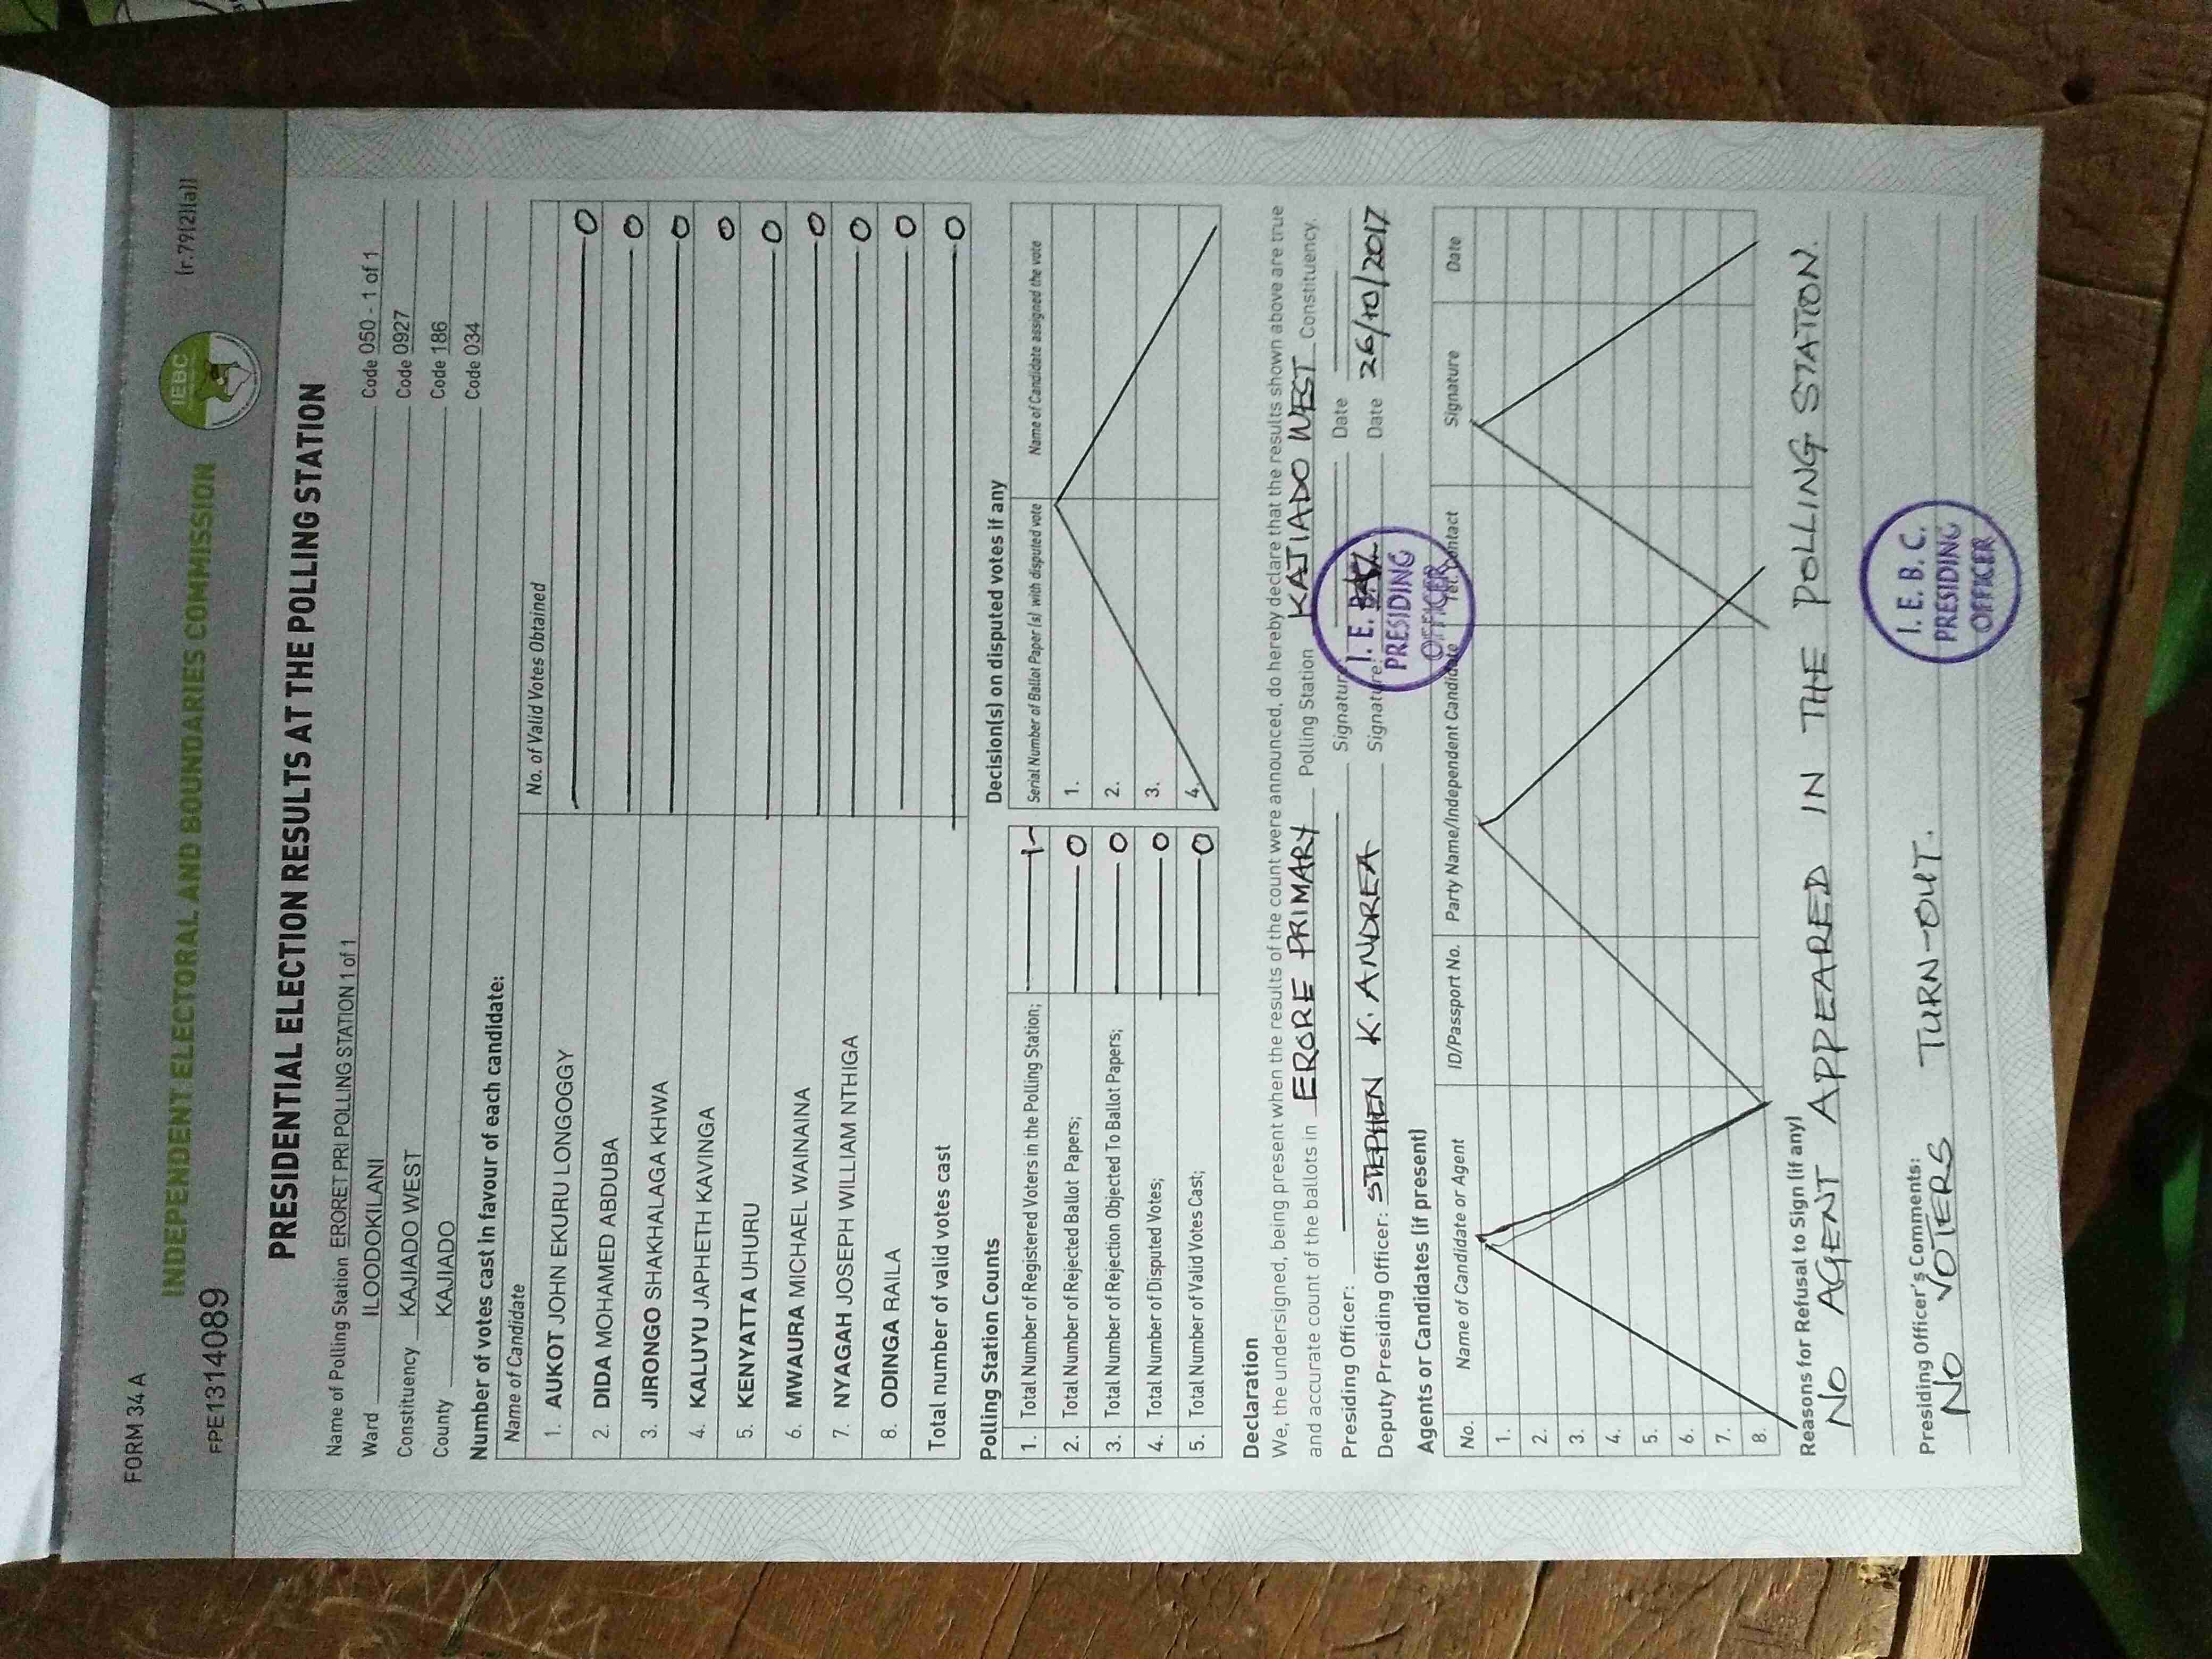 FORM 34 A
[r.79(2)(a)]
INDEPENDENT ELECTORAL AND BOUNDARIES COMMISSION
IEBC
FPE1314089
PRESIDENTIAL ELECTION RESULTS AT THE POLLING STATION
Name of Polling Station ERORET PRI POLLING STATION 1 of 1 Code 050 - 1 of 1
Ward ILOODOKILANI Code 0927
Constituency KAJIADO WEST Code 186
County KAJIADO Code 034
Number of votes cast in favour of each candidate:
Name of Candidate No. of Valid Votes Obtained
1. AUKOT JOHN EKURU LONGOGGY 0
2. DIDA MOHAMED ABDUBA 0
3. JIRONGO SHAKHALAGA KHWA 0
4. KALUYU JAPHETH KAVINGA 0
5. KENYATTA UHURU 0
6. MWAURA MICHAEL WAINAINA 0
7. NYAGAH JOSEPH WILLIAM NTHIGA 0
8. ODINGA RAILA 0
Total number of valid votes cast 0
Polling Station Counts
1. Total Number of Registered Voters in the Polling Station;
2. Total Number of Rejected Ballot Papers; 0
3. Total Number of Rejection Objected To Ballot Papers; 0
4. Total Number of Disputed Votes; 0
5. Total Number of Valid Votes Cast; 0
Decision(s) on disputed votes if any
Serial Number of Ballot Paper (s) with disputed vote Name of Candidate assigned the vote
1.
2.
3.
4.
Declaration
We, the undersigned, being present when the results of the count were announced, do hereby declare that the results shown above are true
and accurate count of the ballots in ERORE PRIMARY Polling Station KAJIADO WEST Constituency.
Presiding Officer: Signature: Date
Deputy Presiding Officer: STEPHEN K. ANDREA Signature: Date 26/10/2017
I. E. B. C.
PRESIDING
OFFICER
Agents or Candidates (if present)
No. Name of Candidate or Agent ID/Passport No. Party Name/Independent Candidate Tel. Contact Signature Date
1.
2.
3.
4.
5.
6.
7.
8.
Reasons for Refusal to Sign (if any)
NO AGENT APPEARED IN THE POLLING STATON.
Presiding Officer's Comments:
NO VOTERS TURN-OUT.
I. E. B. C.
PRESIDING
OFFICER